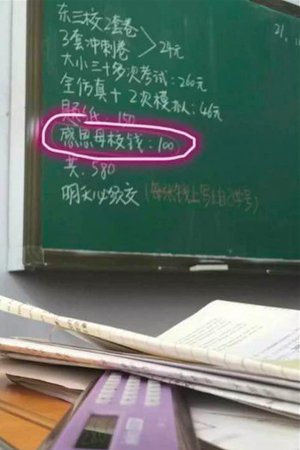 东三校2套卷
3套冲刺卷 >24元
大小三十多次考试:260元
全仿真+2次模拟:46元
题纸:150
感恩母校钱:100
共:580
明天必须交(每张钱上写上自己学号)
21.